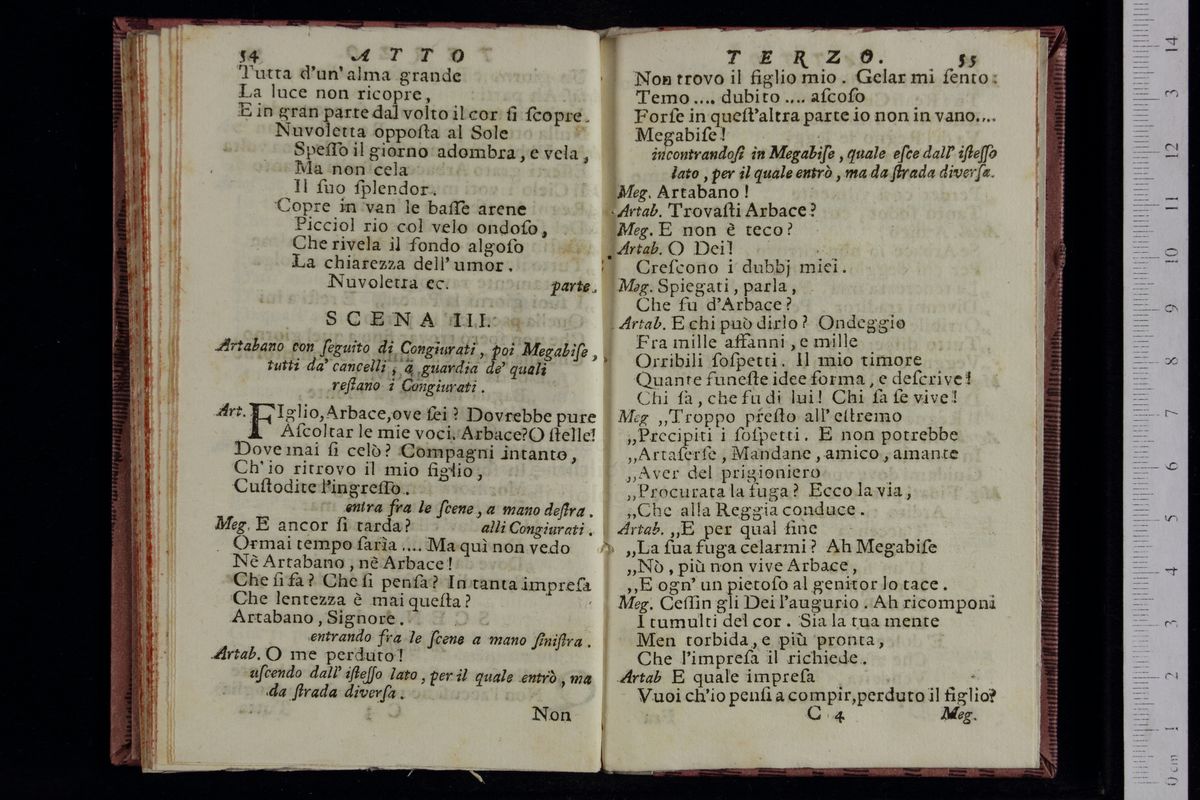 54 ATTO
Tutta d'un' alma grande
La luce non ricopre,
E in gran parte dal volto il cor ſi ſcopre.
Nuvoletta oppoſta al Sole
Speſſo il giorno adombra, e vela,
Ma non cela
Il ſuo ſplendor.
Copre in van le baſſe arene
Picciol rio col velo ondoſo,
Che rivela il fondo algoſo
La chiarezza dell' umor.
Nuvoletta ec. parte.
SCENA III.
Artabano con ſeguito di Congiurati, poi Megabiſe,
tutti da' cancelli, a guardia de' quali
reſtano i Congiurati.
Art. FIglio, Arbace, ove ſei? Dovrebbe pure
Aſcoltar le mie voci. Arbace? O ſtelle!
Dove mai ſi celò? Compagni intanto,
Ch' io ritrovo il mio figlio,
Cuſtodite l'ingreſſo.
entra fra le ſcene, a mano deſtra.
Meg. E ancor ſi tarda? alli Congiurati.
Ormai tempo ſarìa .... Ma quì non vedo
Nè Artabano, nè Arbace!
Che ſi fa? Che ſi penſa? In tanta impreſa
Che lentezza è mai queſta?
Artabano, Signore.
entrando fra le ſcene a mano ſiniſtra.
Artab. O me perduto!
uſcendo dall' iſteſſo lato, per il quale entrò, ma
da ſtrada diverſa.
Non
TERZO. 55
Non trovo il figlio mio. Gelar mi ſento:
Temo .... dubito .... aſcoſo
Forſe in queſt'altra parte io non in vano....
Megabiſe!
incontrandoſi in Megabiſe, quale eſce dall' iſteſſo
lato, per il quale entrò, ma da ſtrada diverſa.
Meg. Artabano!
Artab. Trovaſti Arbace?
Meg. E non è teco?
Artab. O Dei!
Creſcono i dubbj miei.
Meg. Spiegati, parla,
Che fu d'Arbace?
Artab. E chi può dirlo? Ondeggio
Fra mille affanni, e mille
Orribili ſoſpetti. Il mio timore
Quante funeſte idee forma, e deſcrive!
Chi ſa, che fu di lui! Chi ſa ſe vive!
Meg „Troppo preſto all' eſtremo
„Precipiti i ſoſpetti. E non potrebbe
„Artaſerſe, Mandane, amico, amante
„Aver del prigioniero
„Procurata la fuga? Ecco la via,
„Che alla Reggia conduce.
Artab. „E per qual fine
„La ſua fuga celarmi? Ah Megabiſe
„Nò, più non vive Arbace,
„E ogn' un pietoſo al genitor lo tace.
Meg. Ceſſin gli Dei l'augurio. Ah ricomponi
I tumulti del cor. Sia la tua mente
Men torbida, e più pronta,
Che l'impreſa il richiede.
Artab E quale impreſa
Vuoi ch'io penſi a compir, perduto il figlio?
C 4 Meg.
0 cm 1 2 3 4 5 6 7 8 9 10 11 12 13 14